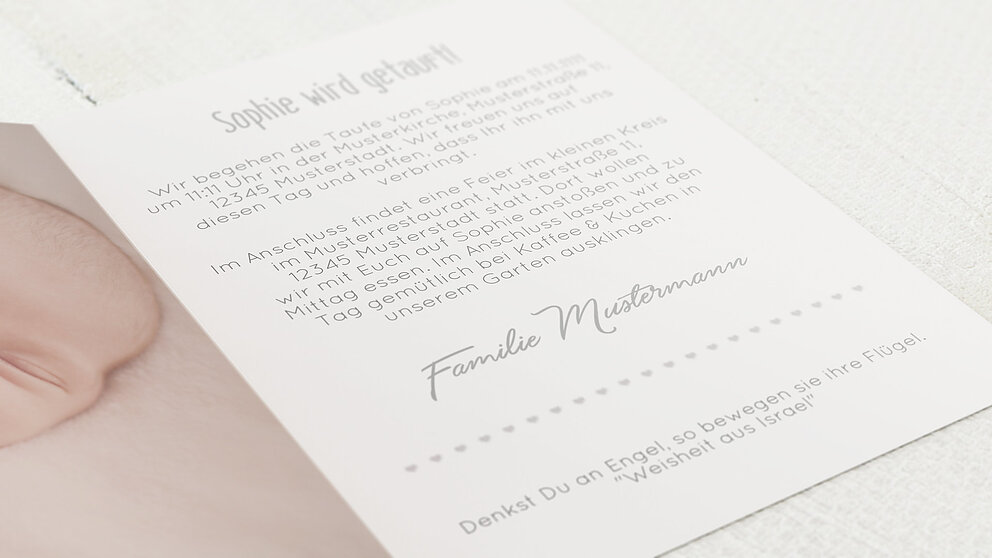 Sophie wird getauft!
Wir begehen die Taufe von Sophie am 11.11.1111
um 11:11 Uhr in der Musterkirche, Musterstraße 11,
12345 Musterstadt. Wir freuen uns auf
diesen Tag und hoffen, dass ihr ihn mit uns
verbringt.
Im Anschluss findet eine Feier im kleinen Kreis
im Musterrestaurant, Musterstraße 11,
12345 Musterstadt statt. Dort wollen
wir mit Euch auf Sophie anstoßen und zu
Mittag essen. Im Anschluss lassen wir den
Tag gemütlich bei Kaffee & Kuchen in
unserem Garten ausklingen.
Familie Mustermann
Denkst Du an Engel, so bewegen sie ihre Flügel.
"Weisheit aus Israel"